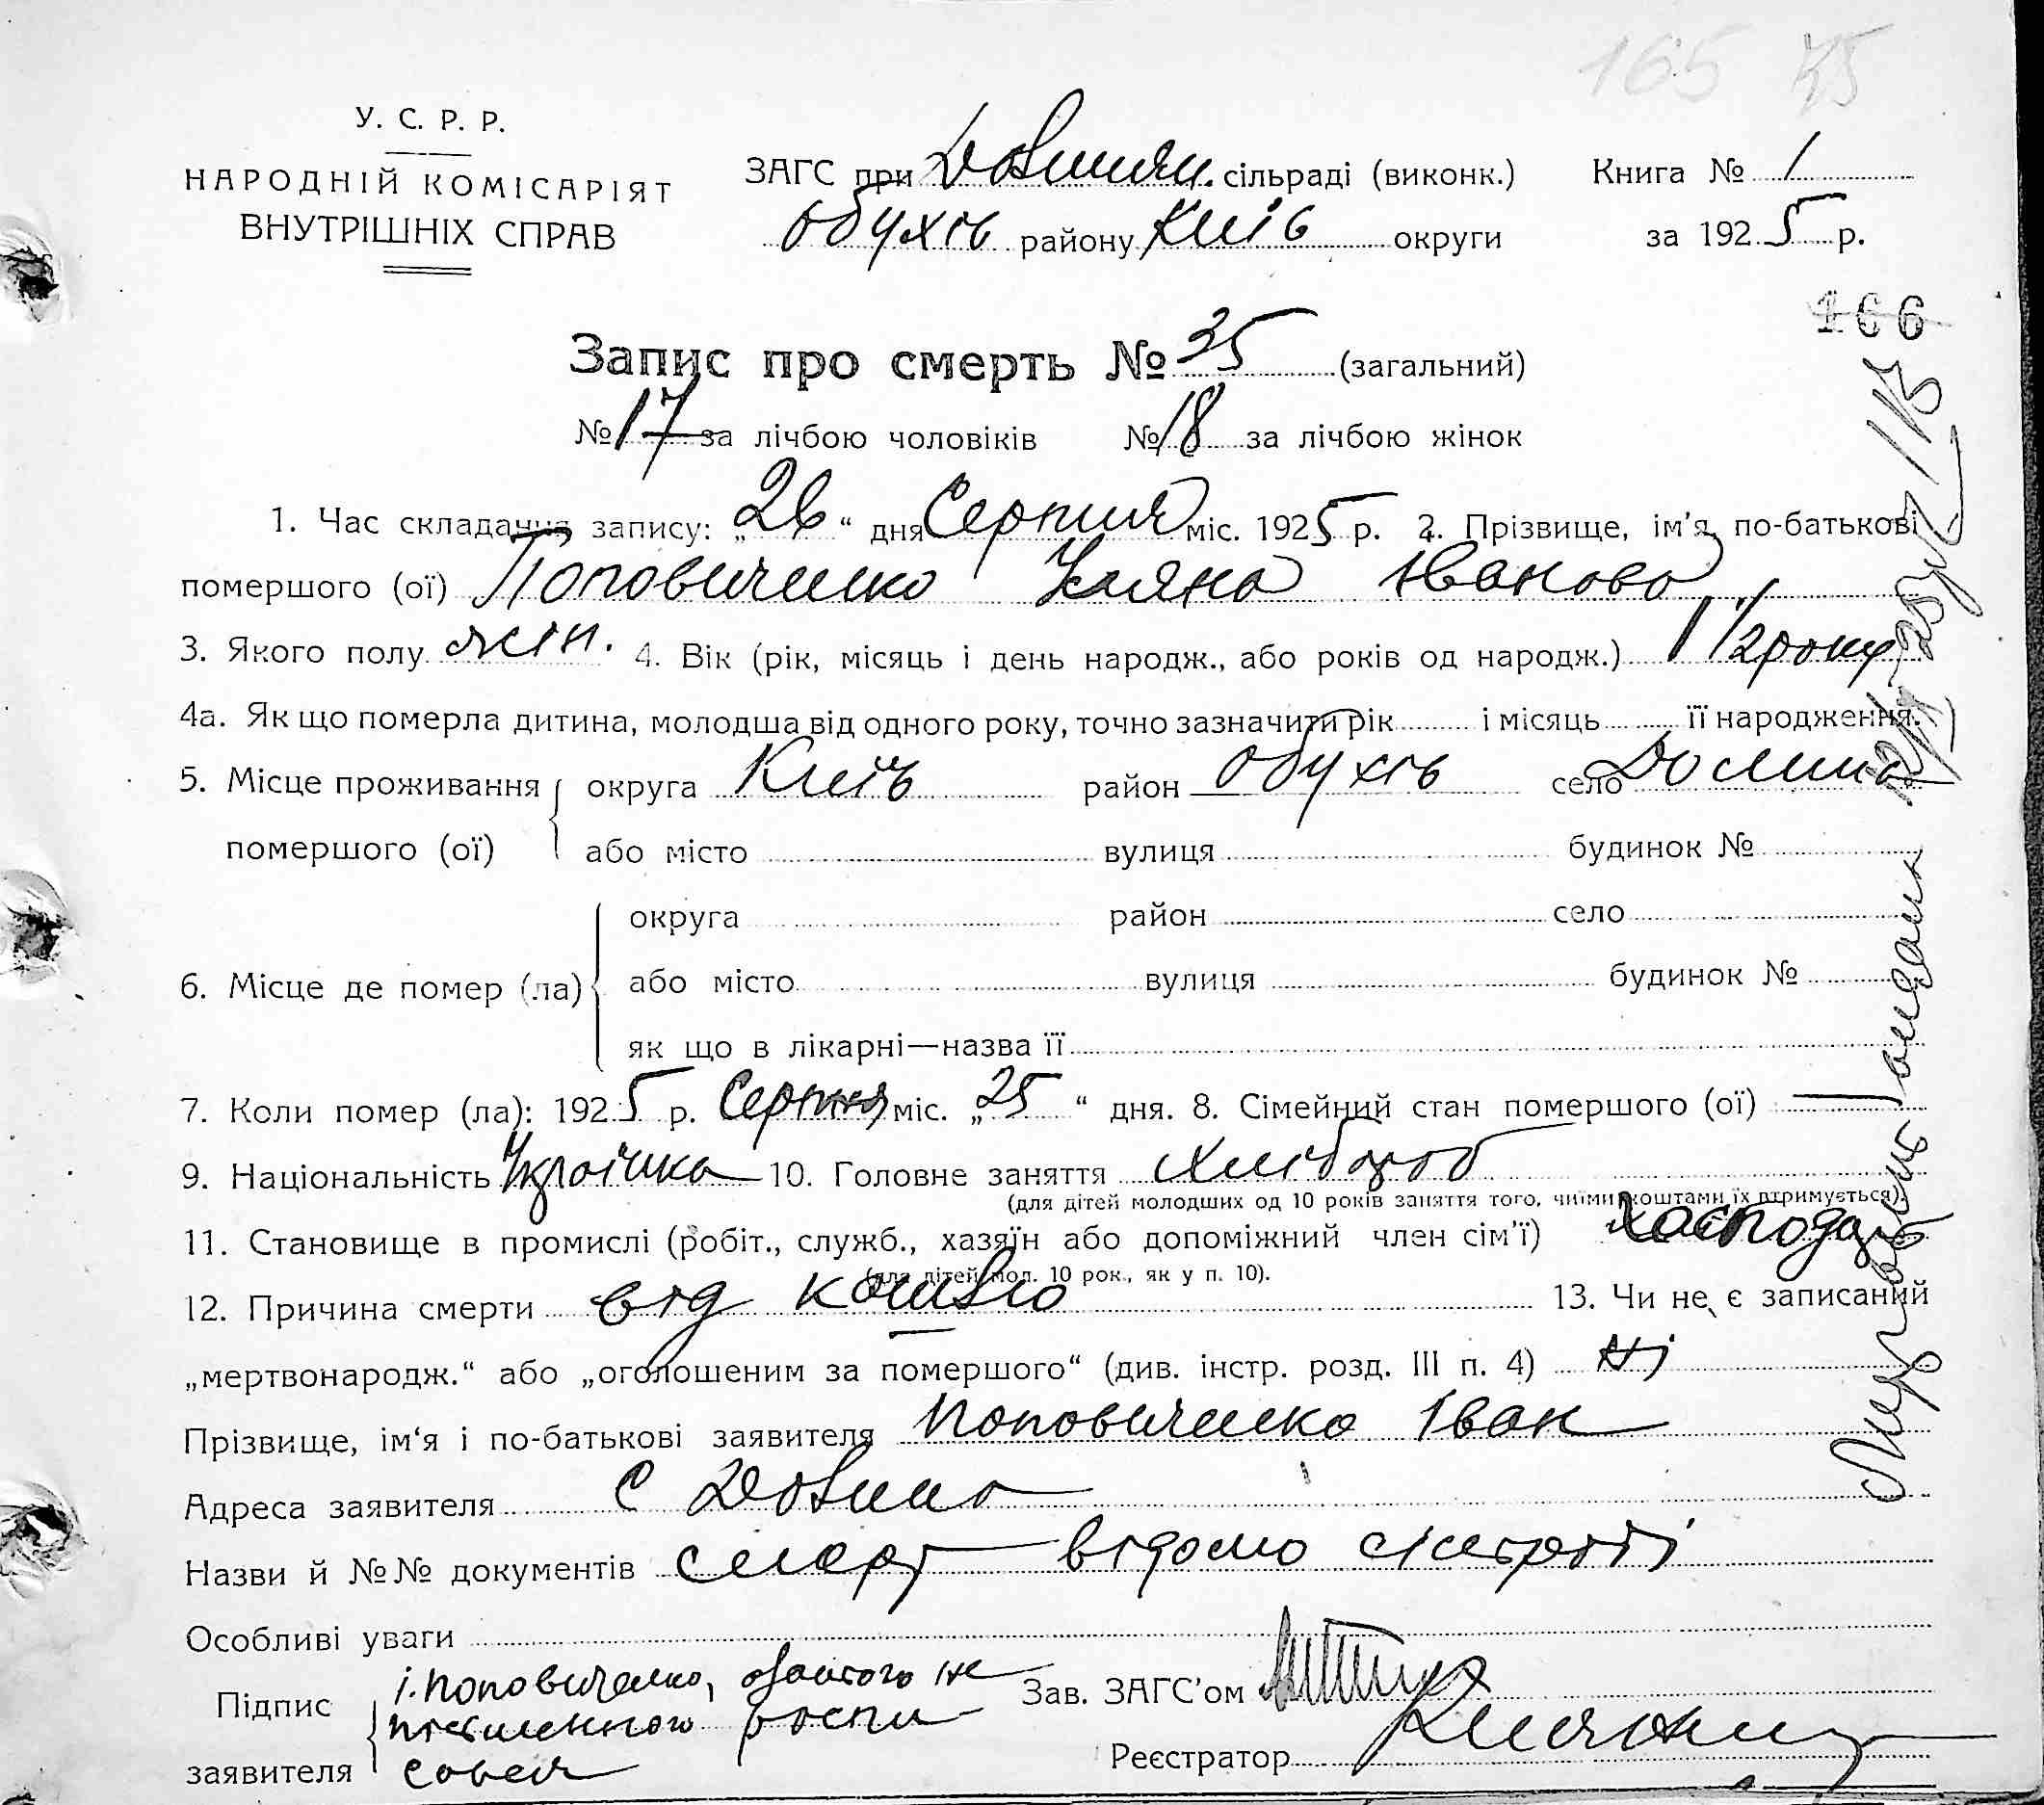 165 75
У. С. Р. Р.
НАРОДНІЙ КОМІСАРІЯТ
ВНУТРІШНІХ СПРАВ
ЗАГС при Довинян. сільраді (виконк.) Книга № 1
Обухів району Київ округи за 1925 р.
166
Запис про смерть № 35 (загальний)
№ 17 за лічбою чоловіків № 18 за лічбою жінок
1. Час складання запису: „26“ дня Серпня міс. 1925 р. 2. Прізвище, ім'я, по-батькові
помершого (ої) Поповиченко Уляна Іванова
3. Якого полу жін. 4. Вік (рік, місяць і день народж., або років од народж.) 1 1/2 року
4а. Як що померла дитина, молодша від одного року, точно зазначити рік і місяць її народження.
5. Місце проживання округа Київ район Обухів село Долина
помершого (ої) або місто вулиця будинок №
округа район село
6. Місце де помер (ла) або місто вулиця будинок №
як що в лікарні—назва її
7. Коли помер (ла): 1925 р. Серпня міс. „25“ дня. 8. Сімейний стан помершого (ої) —
9. Національність Українка 10. Головне заняття Хлібороб
(для дітей молодших од 10 років заняття того, чиїми коштами їх втримується).
11. Становище в промислі (робіт., служб., хазяїн або допоміжний член сім'ї) хосподарь
(для дітей мол. 10 рок., як у п. 10).
12. Причина смерти від кошлю 13. Чи не є записаний
„мертвонародж.“ або „оголошеним за помершого“ (див. інстр. розд. III п. 4) Ні
Прізвище, ім'я і по-батькові заявителя Поповиченко Іван
Адреса заявителя с Довина
Назви й №№ документів смерт відомо сільраді
Особливі уваги
Підпис І. Поповиченко, за його не Зав. ЗАГС'ом
письменного роспи
заявителя Реєстратор